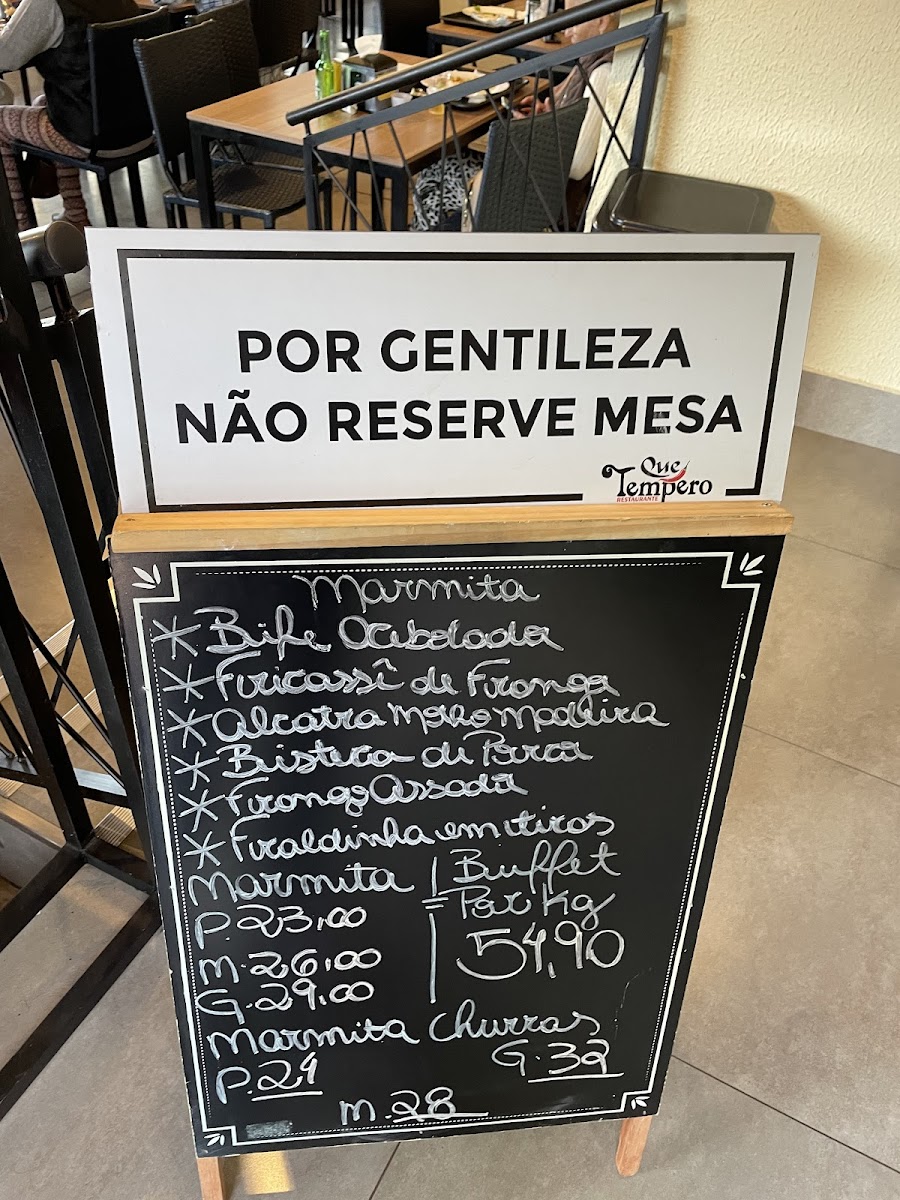 POR GENTILEZA
NÃO RESERVE MESA
Que
Tempero
RESTAURANTE
Marmita
* Bife Acebolada
* Fricassê de Frango
* Alcatra Molho Madeira
* Bisteca de Porco
* Frango Assado
* Fraldinha em tiras
Marmita | Buffet
P. 23,00 = Por Kg
M. 26,00 | 54,90
G. 29,00
Marmita Churras
P. 24 G. 32
M. 28